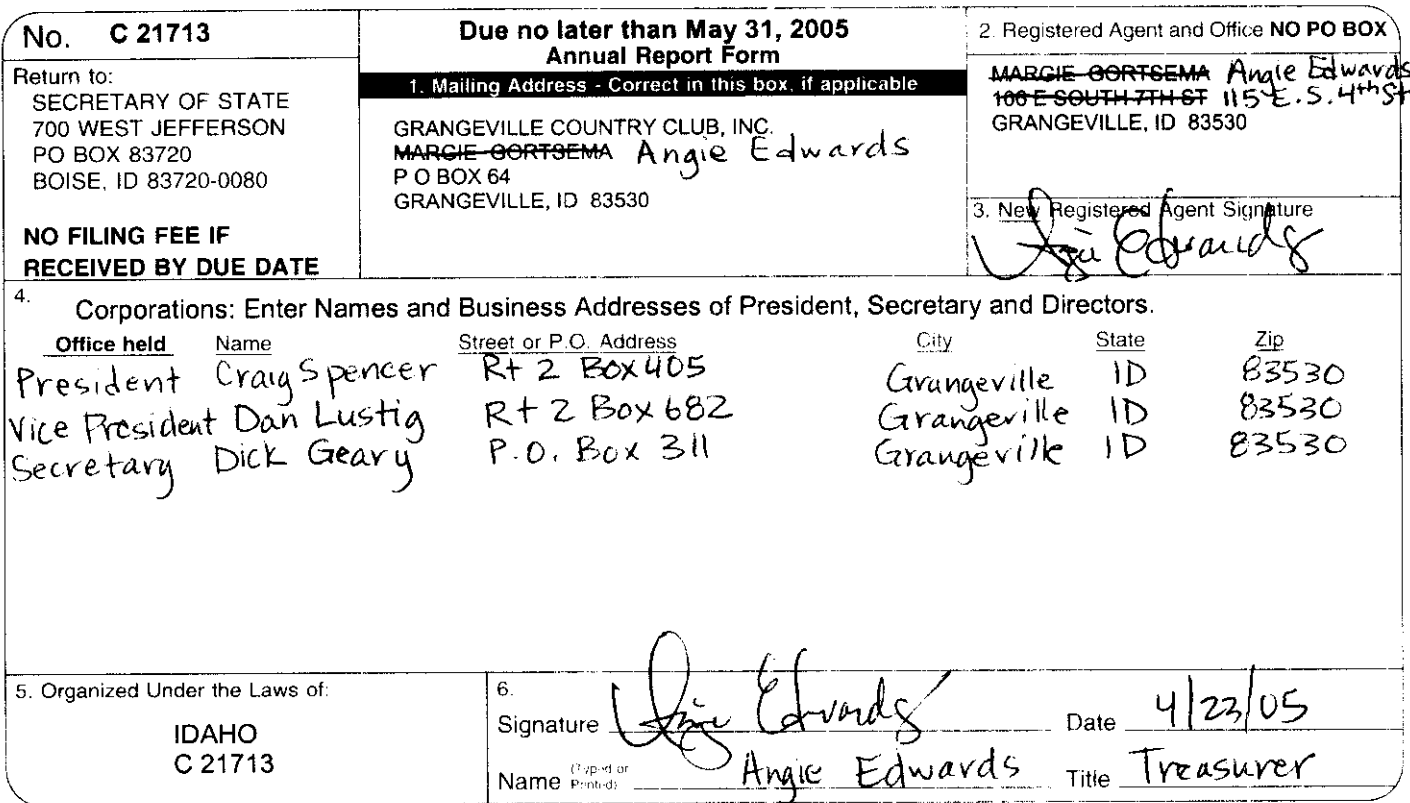 No. C 21713
Return to:
SECRETARY OF STATE
700 WEST JEFFERSON
PO BOX 83720
BOISE, ID 83720-0080
NO FILING FEE IF
RECEIVED BY DUE DATE
Due no later than May 31, 2005
Annual Report Form
1. Mailing Address - Correct in this box, if applicable
GRANGEVILLE COUNTRY CLUB, INC.
MARGIE GORTSEMA Angie Edwards
P O BOX 64
GRANGEVILLE, ID 83530
2. Registered Agent and Office NO PO BOX
MARGIE GORTSEMA Angie Edwards
100 E SOUTH 7TH ST 115 E. S. 4th St
GRANGEVILLE, ID 83530
3. New Registered Agent Signature
Angie Edwards
4. Corporations: Enter Names and Business Addresses of President, Secretary and Directors.
Office held Name Street or P.O. Address City State Zip
President Craig Spencer Rt 2 Box 405 Grangeville ID 83530
Vice President Dan Lustig Rt 2 Box 682 Grangeville ID 83530
Secretary Dick Geary P.O. Box 311 Grangeville ID 83530
5. Organized Under the Laws of:
IDAHO
C 21713
6.
Signature Angie Edwards Date 4/23/05
Name (Typed or Printed) Angie Edwards Title Treasurer